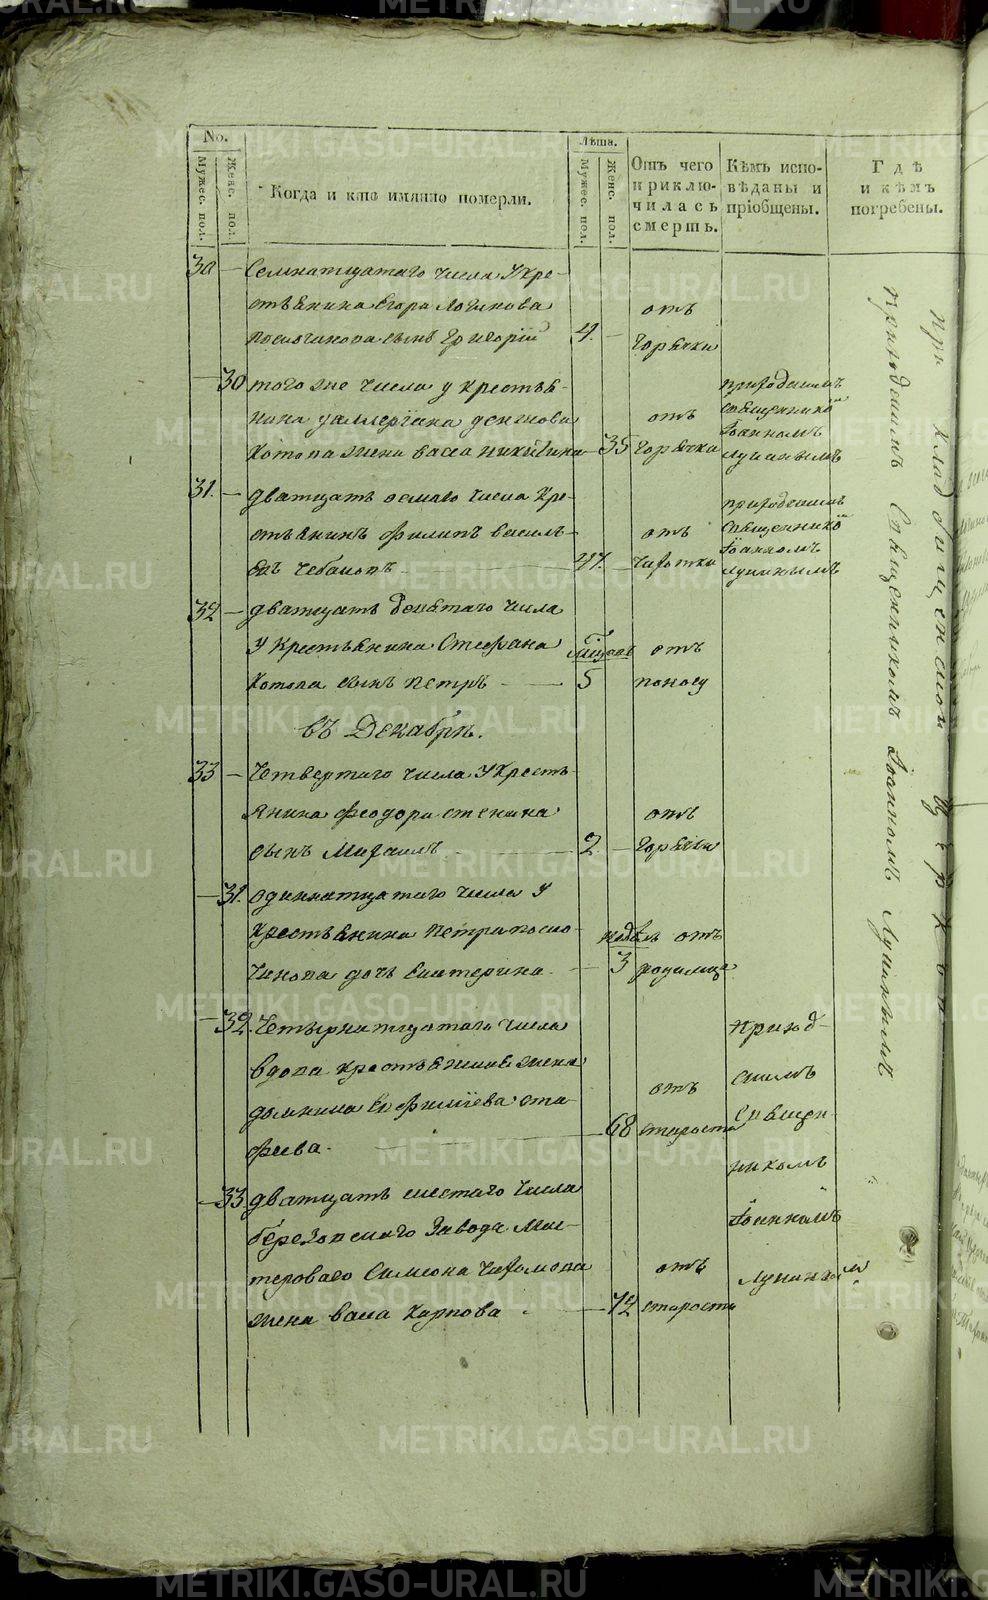 No.
Мужес. пол.
Женс. пол.
Когда и кто имянно померли.
Лѣта.
Мужес. пол.
Женс. пол.
Отъ чего
приклю-
чилась
смерть.
Кѣмъ испо-
вѣданы и
пріобщены.
Гдѣ
и кѣмъ
погребены.
30 — Семнатцатаго числа у кре-
стьянина Егора Логинова
сынъ Григорій 4. —
отъ
горячки
— 30 того же числа у крестья-
нина
жена васса 35
отъ
горячки
приходскимъ
священникомъ
Іоанномъ
Лукинымъ
31. — дватцать осмаго числа кре-
стьянинъ Филипъ василь-
евъ 47. —
отъ
чахотки
приходскимъ
священникомъ
Іоанномъ
Лукинымъ
32 — дватцать девятаго числа
у крестьянина Стефана
Котова сынъ петръ —
5
отъ
поносу
въ Декабрѣ.
33 — Четвертаго числа у кресть-
янина феодора стенина
сынъ Михаилъ — 2 —
отъ
горячки
— 31. одиннатцатаго числа у
крестьянина петра посло-
хинова дочь Екатерина — 3
недѣль отъ
родимца
— 32. Четырнатцатаго числа
вдова крестьянская жена
домнина
68
отъ
старости
приход-
скимъ
священ-
никомъ
Іоанномъ
Лукинымъ
— 33 дватцать шестаго числа
березовскаго завода мас-
тероваго Симеона
жена васса карпова — 72
отъ
старости
при кладбищенской церкви
приходскимъ Священникомъ Іоанномъ Лукинымъ
METRIKI.GASO-URAL.RU